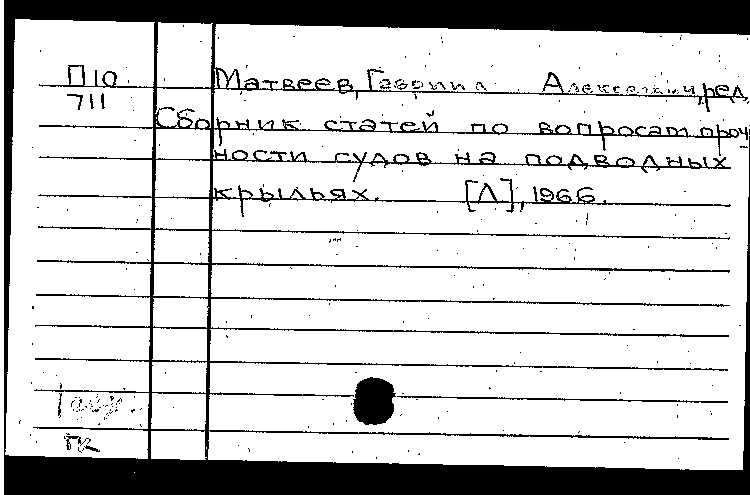 П10 Матвеев, Гавриил Александ, ред.
711
Сборник статей по вопросам проч-
ности судов на подводных
крыльях. [Л], 1966.
гк